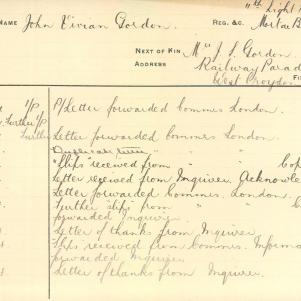 11th Light
NAME John Vivian Gordon. REG. &C. Mortar B
NEXT OF KIN Mrs J. S. Gordon
ADDRESS Railway Parad
West Croydon
P/Letter forwarded Commrs London.
Further Letter forwarded Commrs London.
"Slips" received from " Cop
Letter received from Inquirer. Acknowle
Letter forwarded Commrs. London.
Further "slips" from "
forwarded Inquirer
Letter of thanks from Inquirer
Slips received from Commrs. Informa
forwarded Inquirer
Letter of thanks from Inquirer.